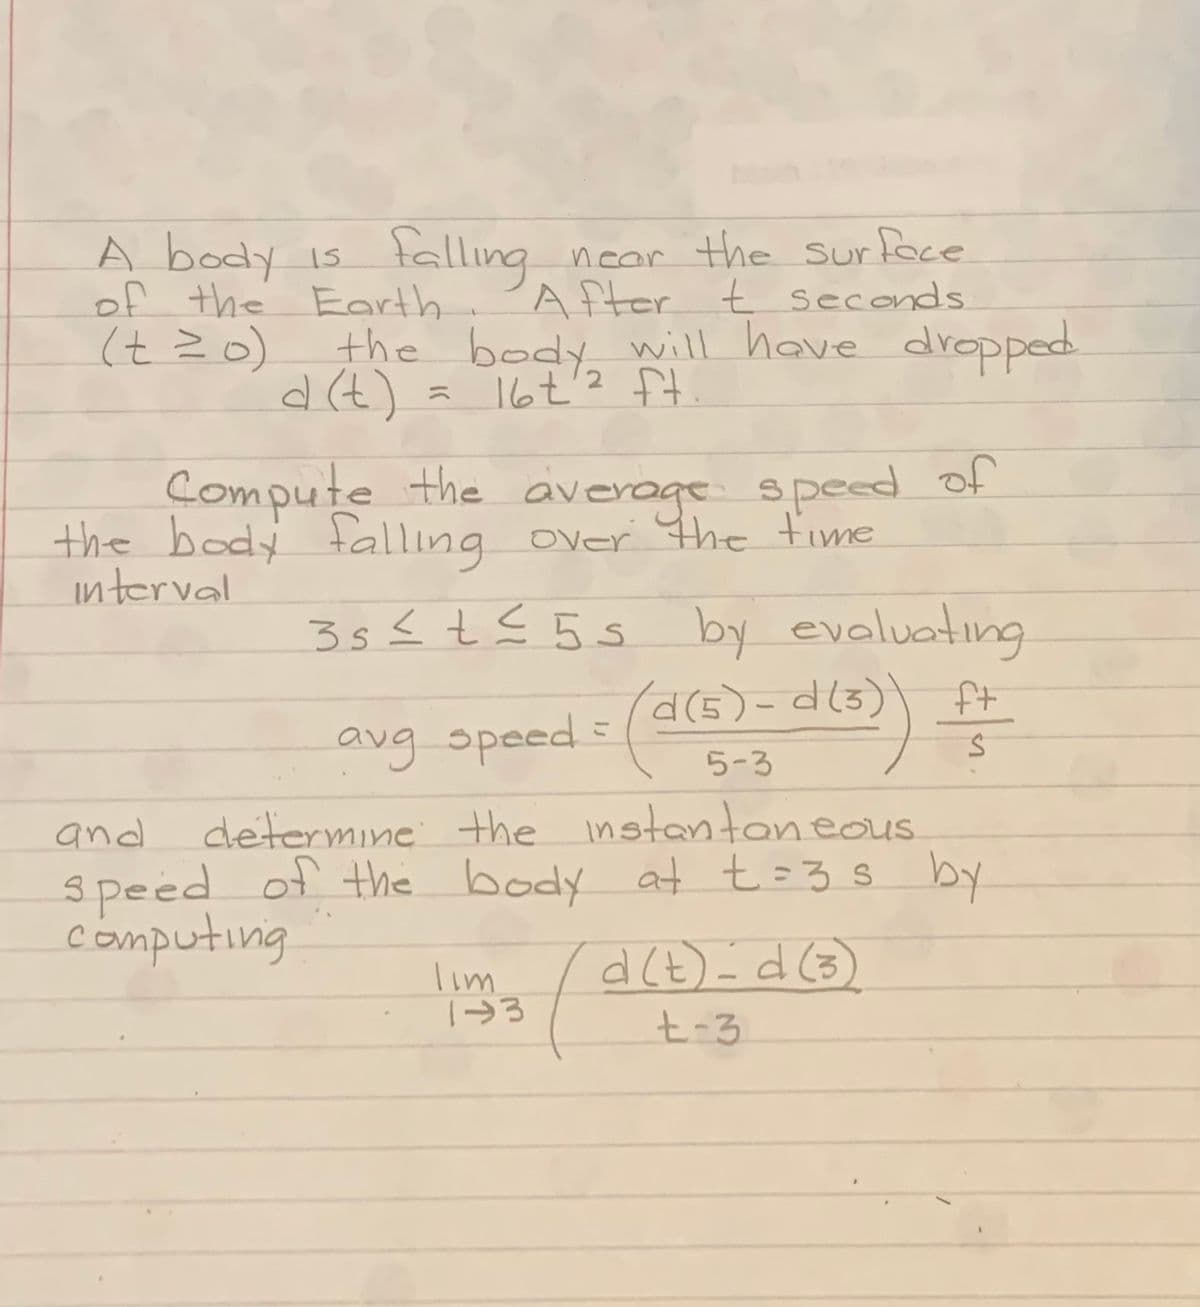 A body is falling near the surface
of the Earth. After t seconds
(t ≥ 0) the body will have dropped
d(t) = 16t² ft.
Compute the average speed of
the body falling over the time
interval
3s ≤ t ≤ 5s by evaluating
avg speed = ( (d(5) - d(3)) / (5-3) ) ft/s
and determine the instantaneous
speed of the body at t=3 s by
computing
lim 1→3 ( (d(t) - d(3)) / (t-3)